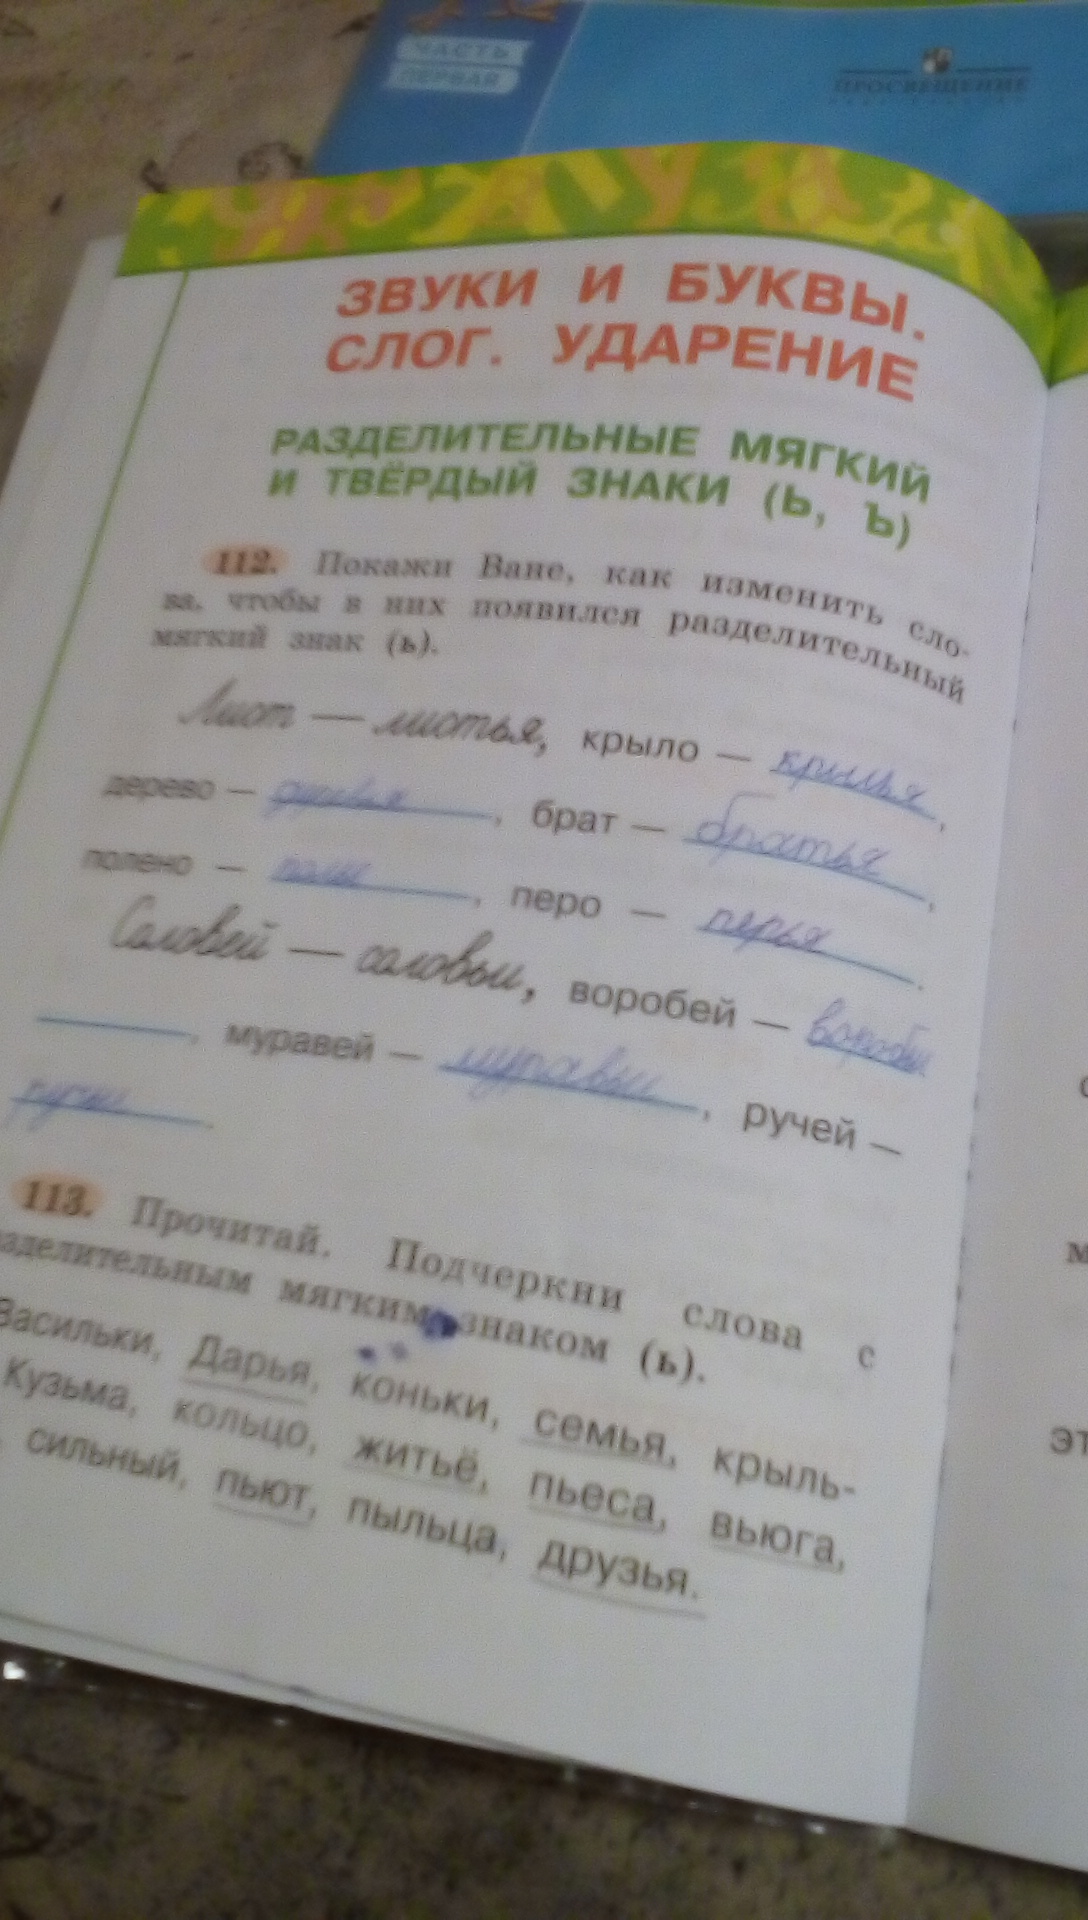 ЧАСТЬ
ПЕРВАЯ
ПРОСВЕЩЕНИЕ
ЗВУКИ И БУКВЫ.
СЛОГ. УДАРЕНИЕ
РАЗДЕЛИТЕЛЬНЫЕ МЯГКИЙ
И ТВЁРДЫЙ ЗНАКИ (Ь, Ъ)
112. Покажи Ване, как изменить сло-
ва, чтобы в них появился разделительный
мягкий знак (ь).
Лист — листья, крыло — крылья,
дерево — деревья, брат — братья,
полено — , перо — перья.
Соловей — соловьи, воробей — воробьи
, муравей — муравьи, ручей —
ручьи.
113. Прочитай. Подчеркни слова с
разделительным мягким знаком (ь).
Васильки, Дарья, коньки, семья, крыль-
Кузьма, кольцо, житьё, пьеса, вьюга,
сильный, пьют, пыльца, друзья.